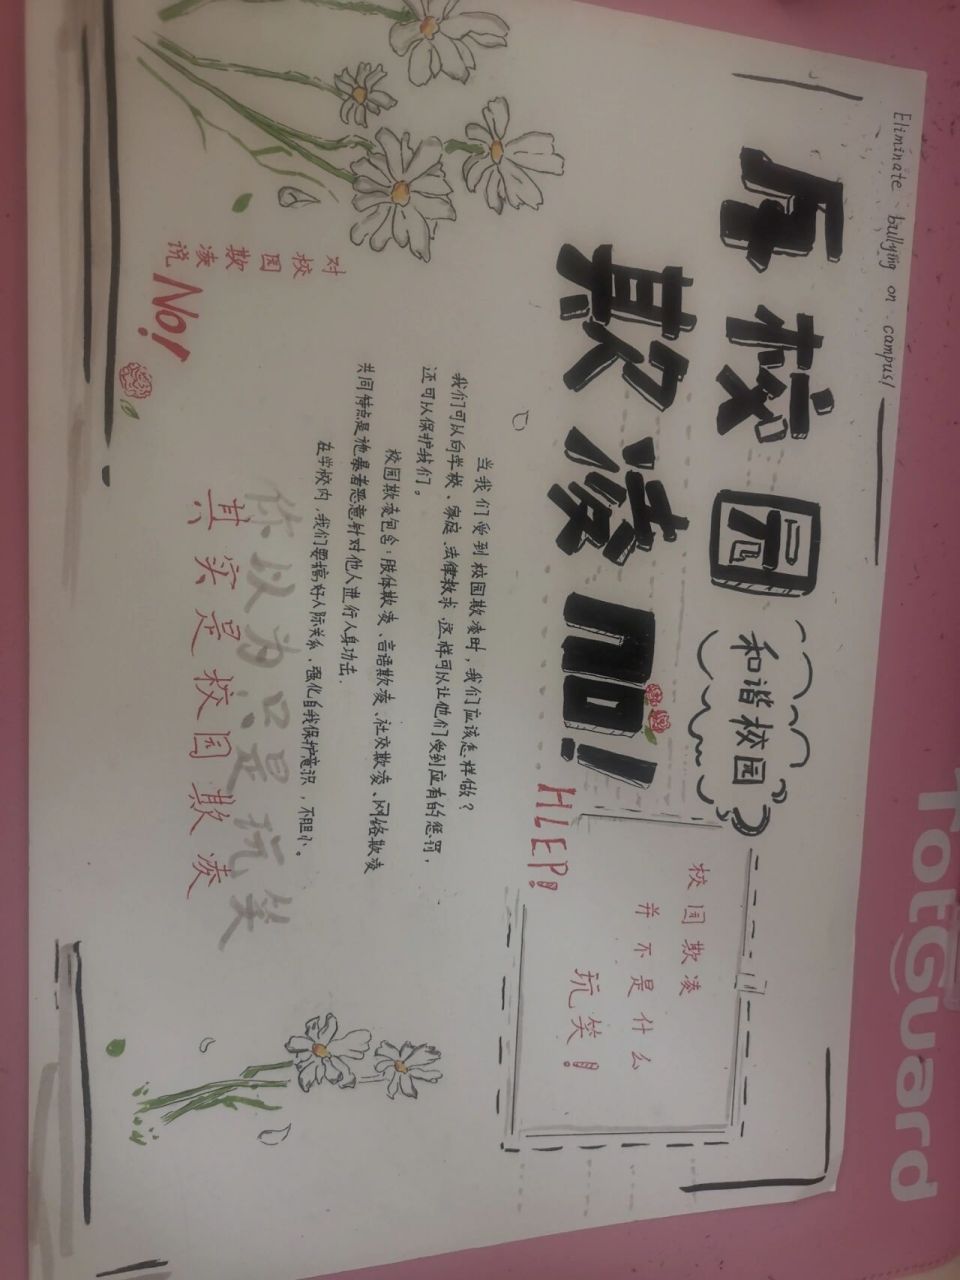 Eliminate bullying on campus!
校园
和谐校园
欺凌
校园欺凌
并不是什么
玩笑!
HLEP!
当我们受到校园欺凌时,我们应该怎样做?
我们可以向学校、家庭、法律救求.这样可以让他们受到应有的惩罚,
还可以保护我们。
校园欺凌包含:肢体欺凌、言语欺凌、社交欺凌、网络欺凌
共同特点是施暴者恶意针对他人进行人身功击.
在学校内,我们要搞好人际关系、强化自我保护意识,不胆小。
对校园欺凌说
No!
你以为只是玩笑
其实是校园欺凌
TotGuard